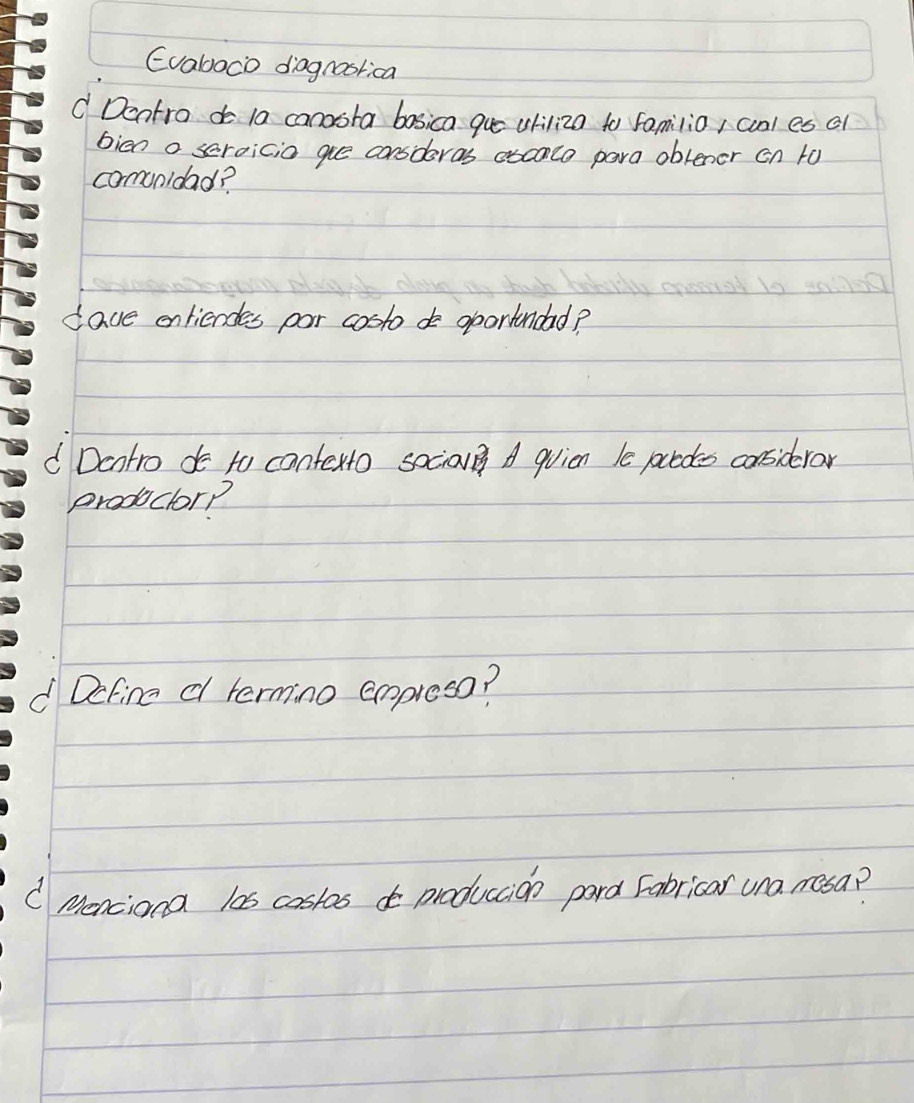 Evaluacio diagnostica
¿Dentro de la canasta basica que utiliza tu familia, cual es el
bien o servicio que consideras escaco para obtener en tu
comunidad?
¿Que entiendes por costo de oportunidad?
¿Dentro de tu contexto social A quien le puedes considerar
productor?
¿Define el termino empresa?
¿Menciona los costos de producción para Fabricar una mesa?